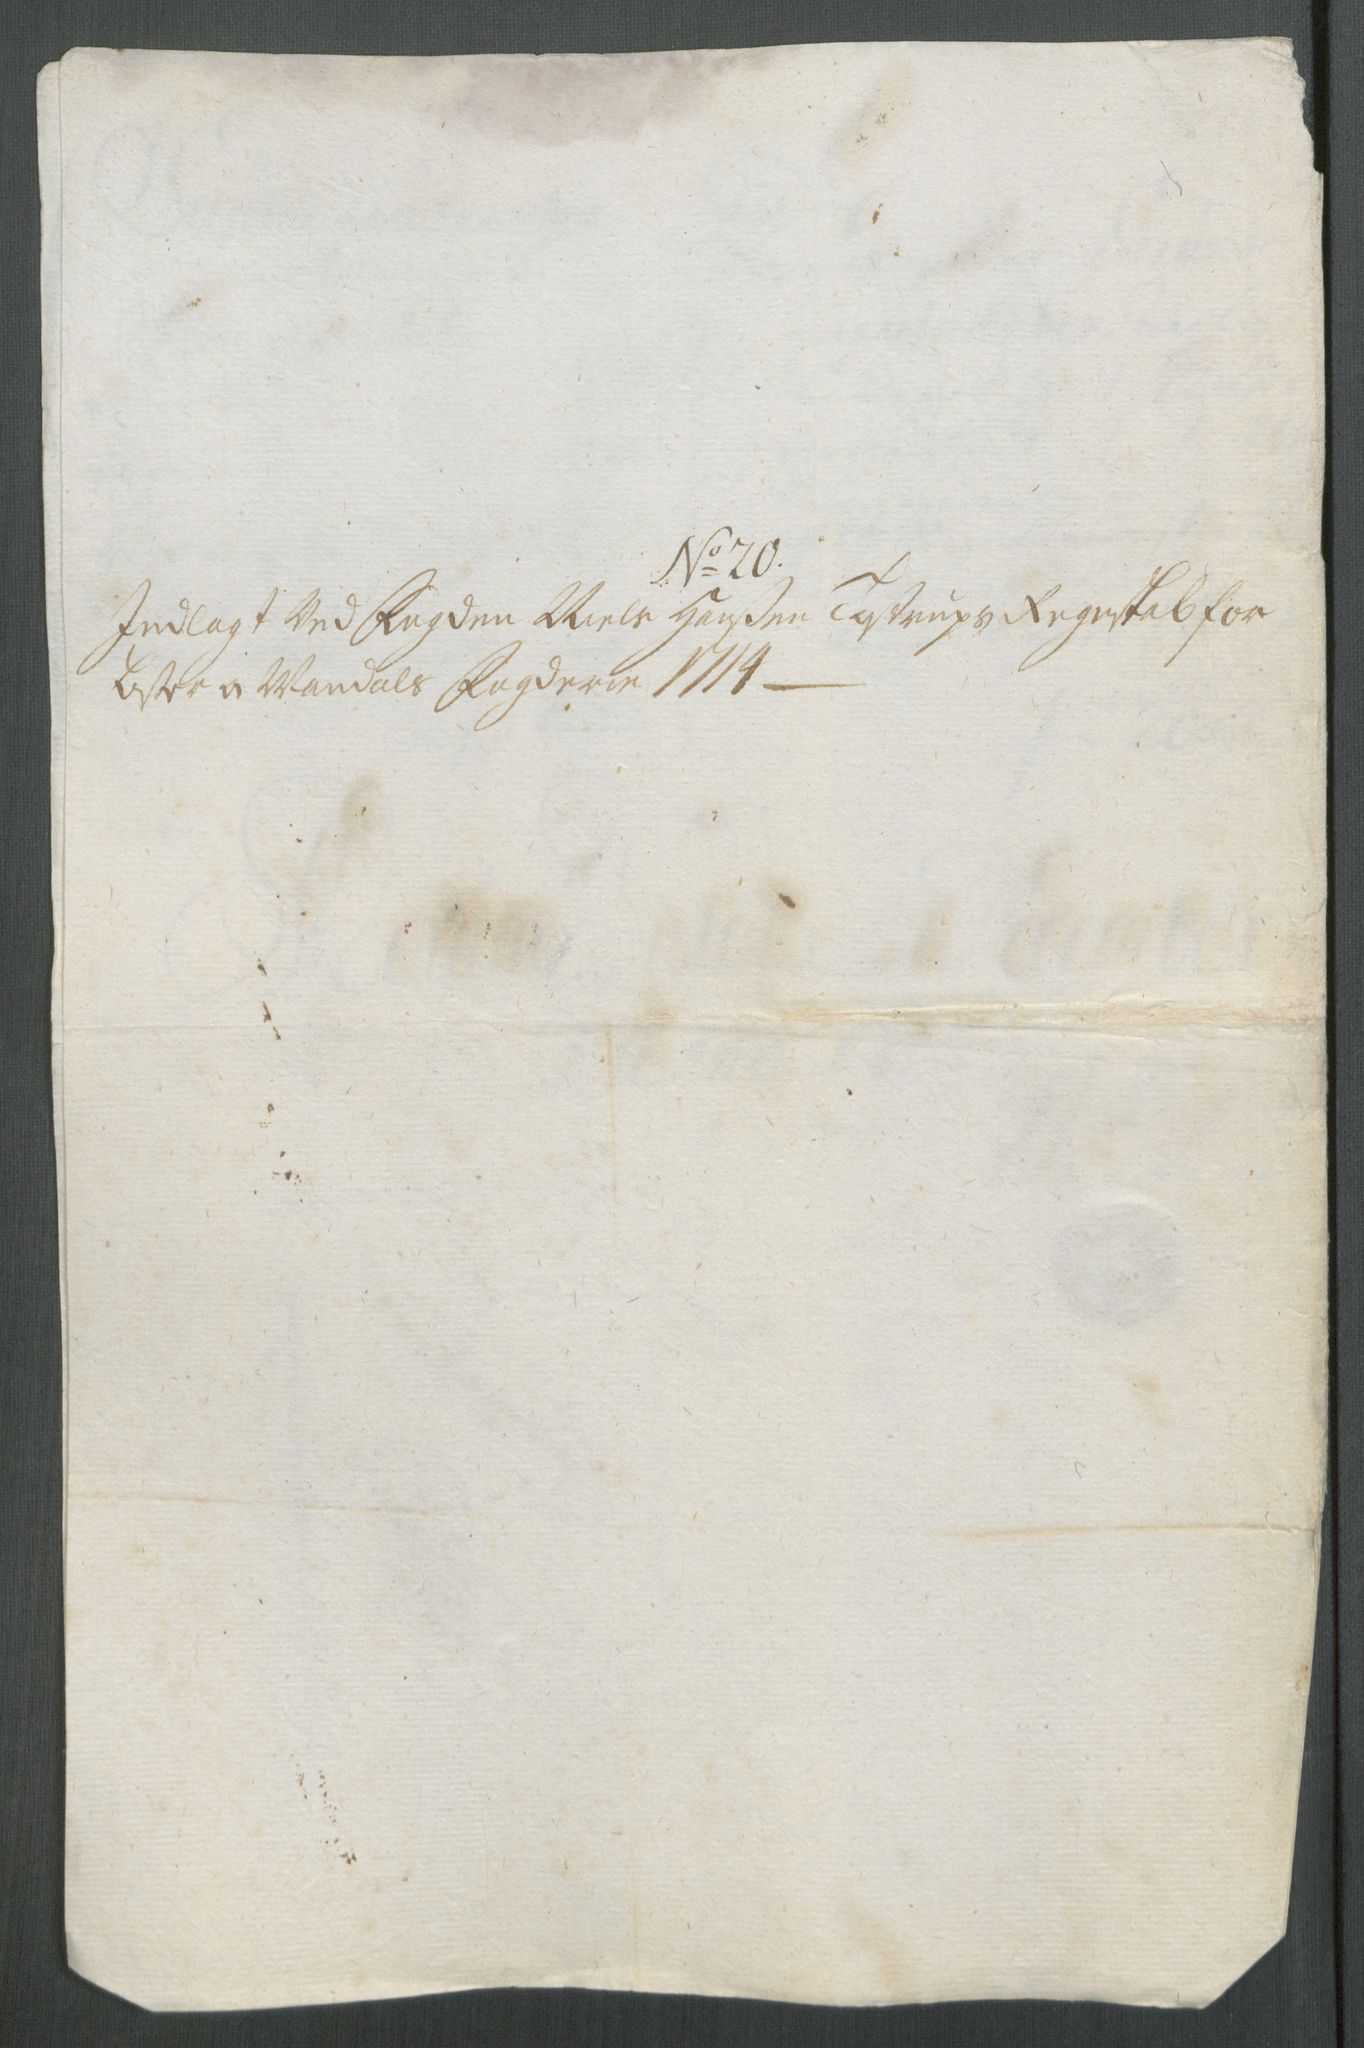 No 20.
Indlagt Ved Fogden Niels Hanßen Tystrups Regnskab for
Lister og Mandals Fogderie 1714